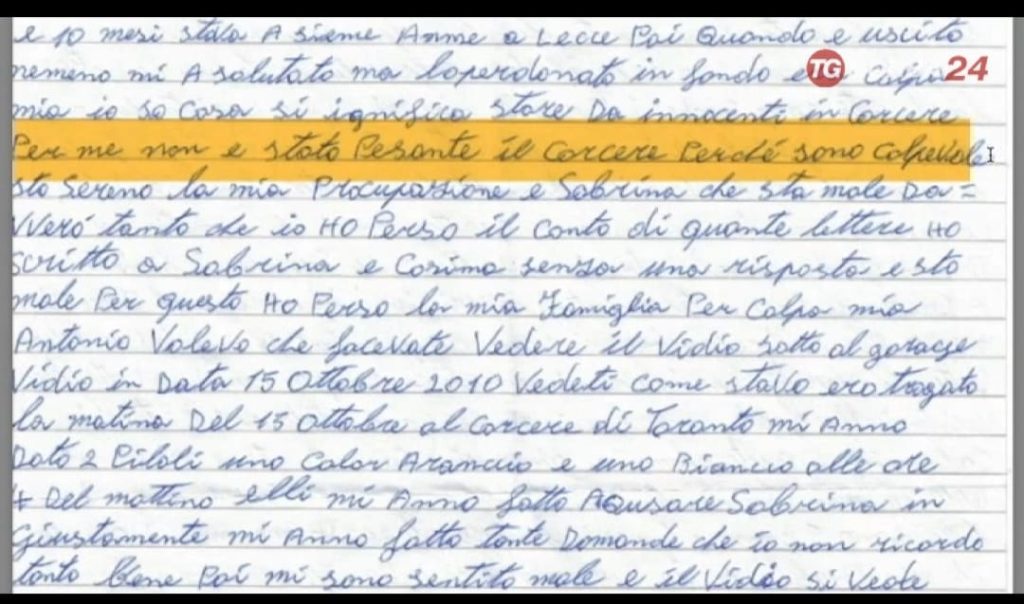 e 10 mesi stato A sieme Anme a Lecce Poi Quando e uscito
nemeno mi A salutato ma loperdonato in fondo e Colpa
TG 24
mia io so Cosa si ignifica stare Da innocenti in Corcere
Per me non e stato Pesante il Corcere Perché sono Colpevole
sto Sereno la mia Procupassione e Sabrina che sta male Da=
VVeró tanto che io HO Perso il conto di quante lettere HO
Scritto a Sabrina e Cosima senza una risposta e sto
male Per questo HO Perso la mia Famiglia Per Colpa mia
Antonio Volevo che facevate Vedere il Vidio sotto al garage
Vidio in Data 15 Ottobre 2010 Vedeti come stavo ero trogato
la matina Del 15 Ottobre al Corcere di Toranto mi Anno
Dato 2 Piloli uno Color Arancio e uno Biancio alle ore
4 Del mattino elli mi Anno fatto AQusare Sabrina in
Giustamente mi Anno fatto tante Domande che io non ricordo
tanto bene Poi mi sono sentito male e il Vidio si Vede